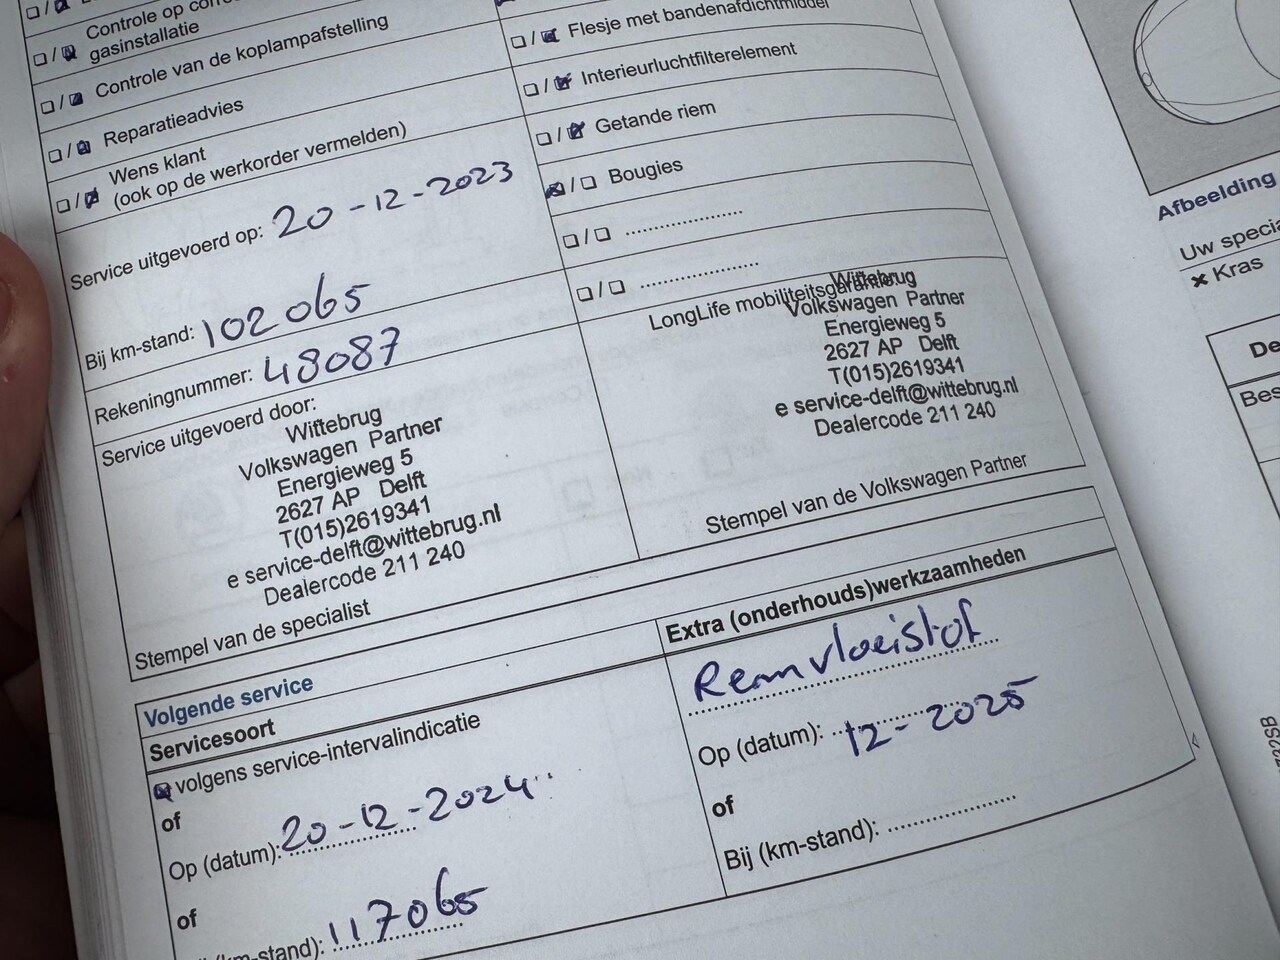 Controle op
gasinstallatie
Controle van de koplampafstelling
Reparatieadvies
Wens klant
(ook op de werkorder vermelden)
Service uitgevoerd op: 20-12-2023
Bij km-stand: 102065
Rekeningnummer: 48087
Service uitgevoerd door:
Wittebrug
Volkswagen Partner
Energieweg 5
2627 AP Delft
T(015)2619341
e service-delft@wittebrug.nl
Dealercode 211 240
Stempel van de specialist
Flesje met bandenafdichtmiddel
Interieurluchtfilterelement
Getande riem
Bougies
LongLife mobiliteitsgarantie
Wittebrug
Volkswagen Partner
Energieweg 5
2627 AP Delft
T(015)2619341
e service-delft@wittebrug.nl
Dealercode 211 240
Stempel van de Volkswagen Partner
Volgende service
Servicesoort
volgens service-intervalindicatie
of
Op (datum): 20-12-2024
of
(km-stand): 117065
Extra (onderhouds)werkzaamheden
Remvloeistof
Op (datum): 12-2025
of
Bij (km-stand):
Afbeelding
Uw specia
× Kras
De
Bes